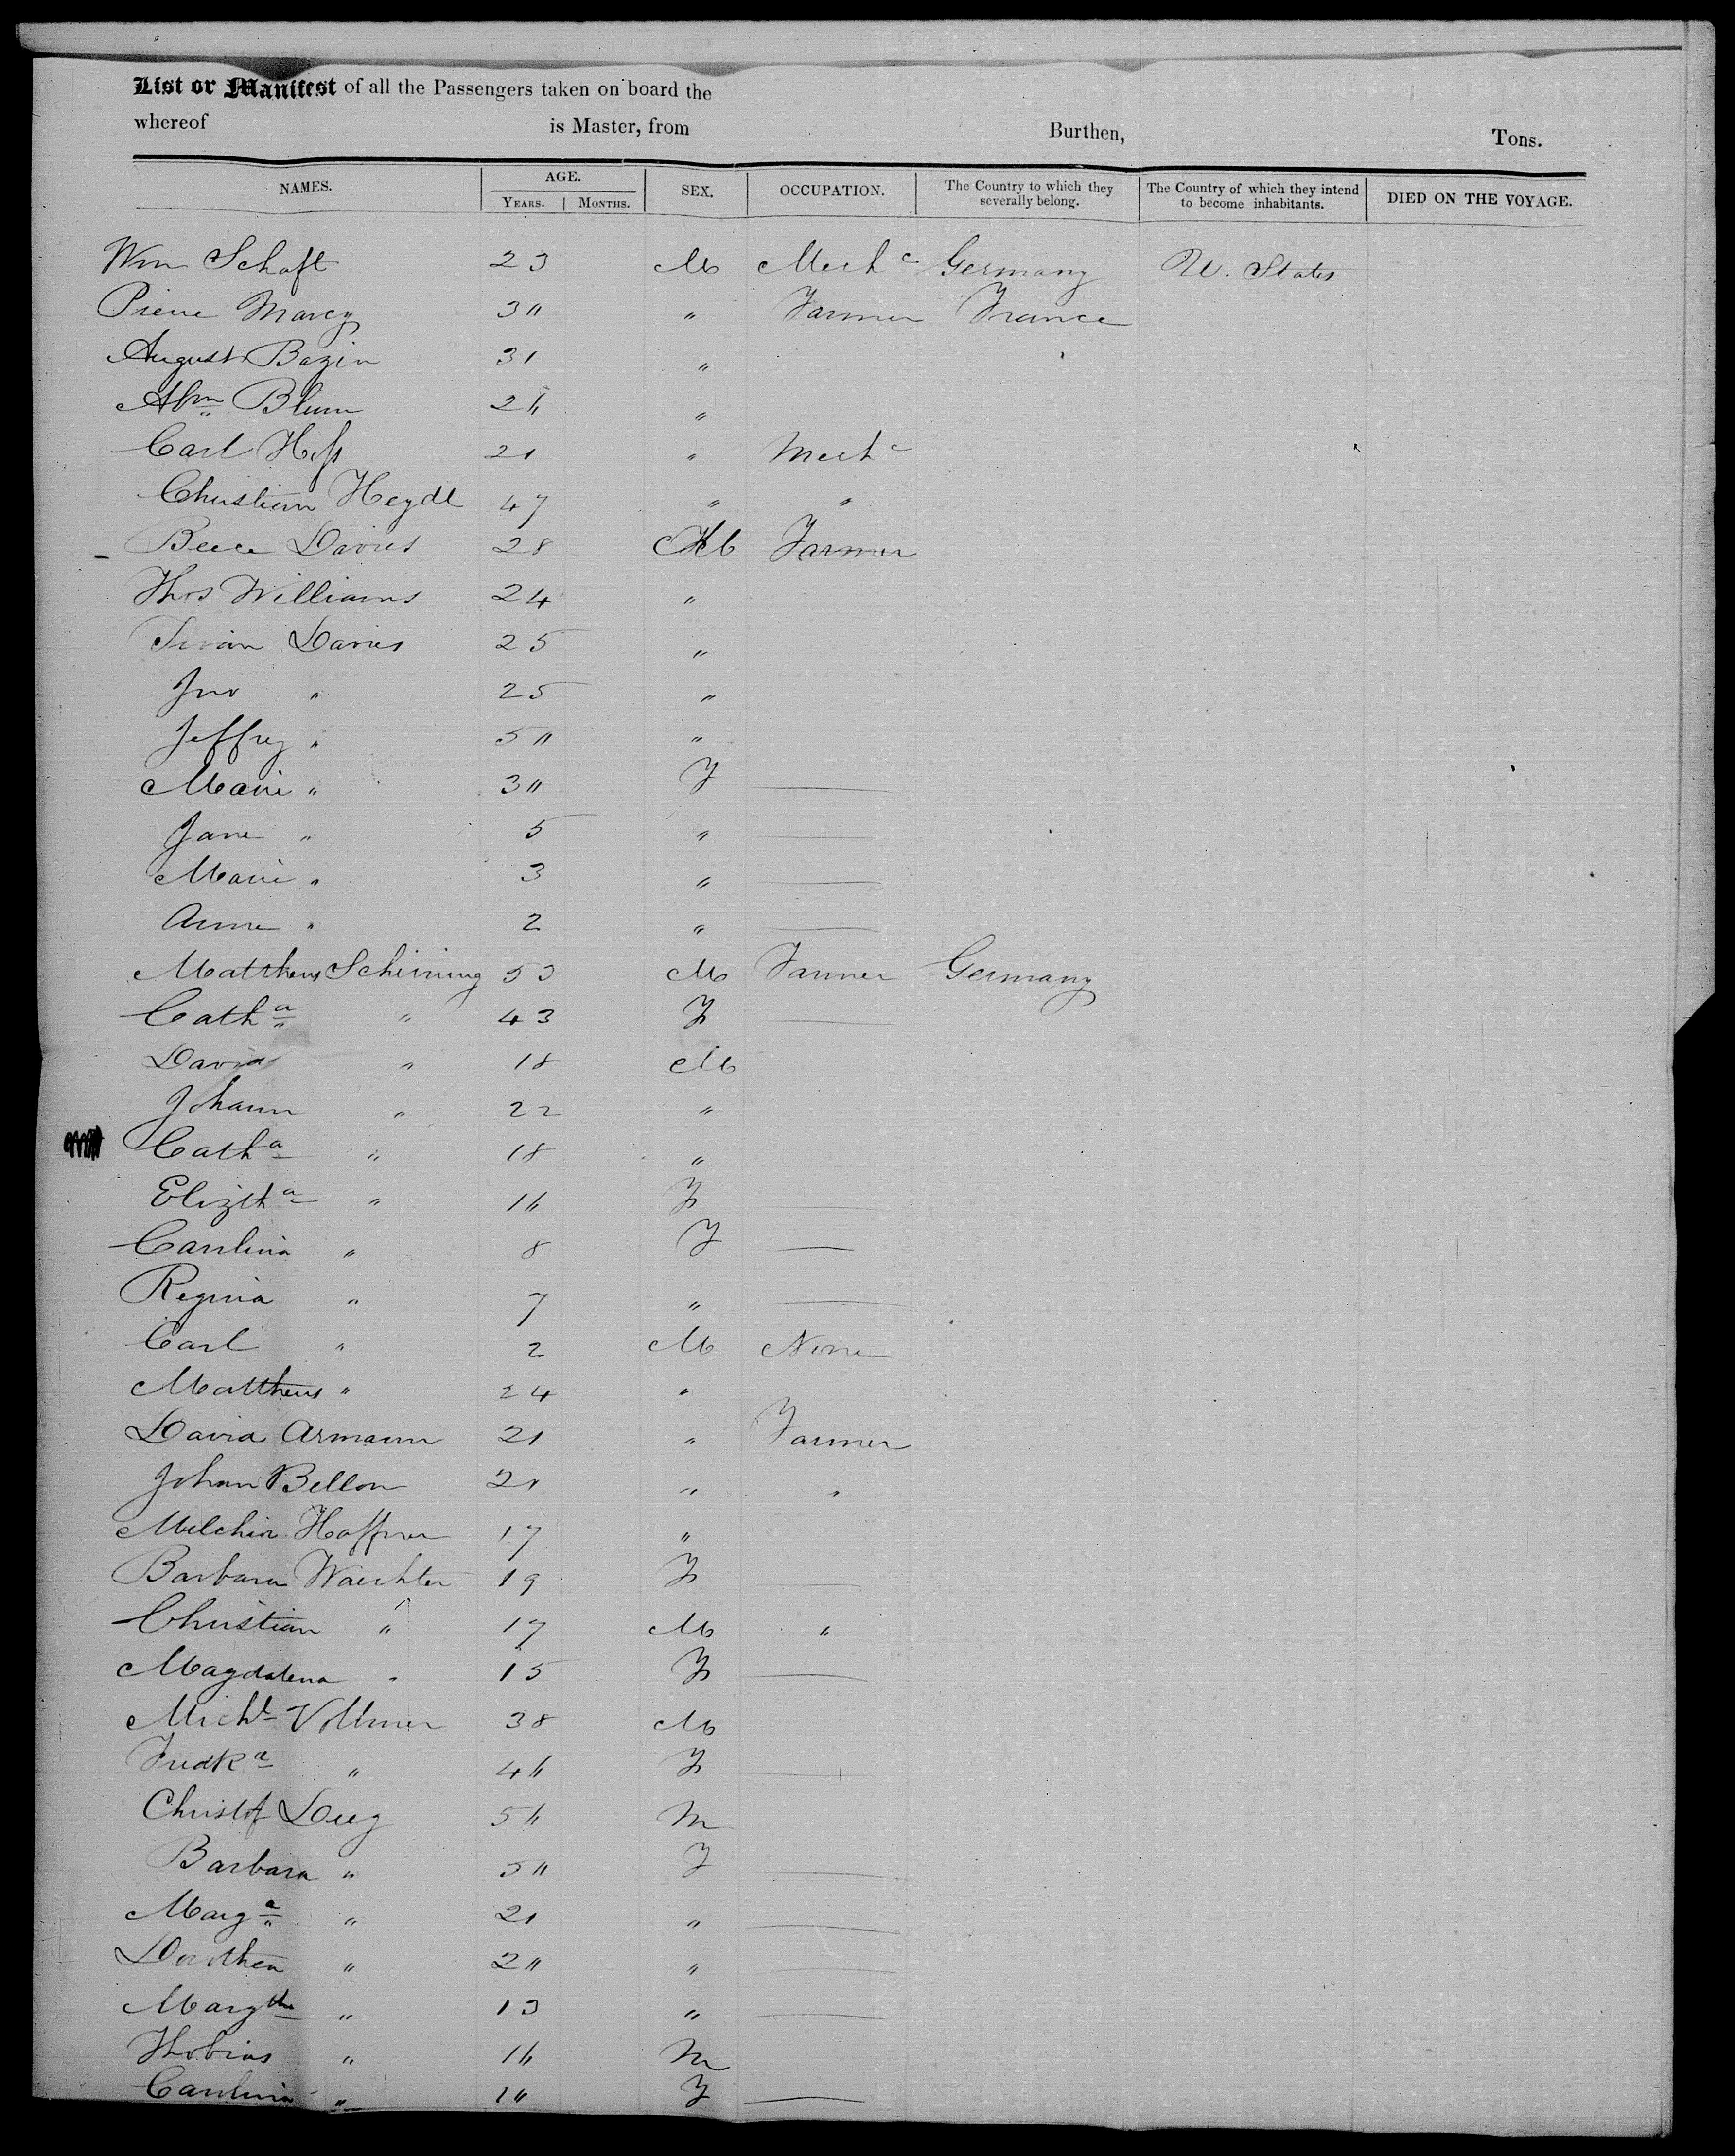 List or Manifest of all the Passengers taken on board the
whereof is Master, from Burthen, Tons.
NAMES. AGE. SEX. OCCUPATION. The Country to which they severally belong. The Country of which they intend to become inhabitants. DIED ON THE VOYAGE.
YEARS. MONTHS.
Wm Schaft 23 M Mechc Germany U. States
Pierre Marcy 3" " Farmer France
August Bazin 31 "
Abm Blum 26 "
Carl Hess 21 " Mechc
Christian Heydt 47 " "
Davies 28 M Farmer
Thos Williams 24 "
Davies 25 "
Jno " 25 "
Jeffrey " 5" "
Marie " 3" F
Jane " 5 "
Marie " 3 "
Anne " 2 "
Mattheus Schirining 53 M Farmer Germany
Catha " 43 F
David " 18 M
Johann " 22 "
Catha " 18 "
Eliztha " 16 F
Carolina " 8 F
Regina " 7 "
Carl " 2 M None
Mattheus " 24 "
David Armann 21 " Farmer
Johan Bellon 21 " "
Melchior Haffner 17 "
Barbara Waechter 19 F
Christian " 17 M "
Magdalena " 15 F
Michl Vollmer 38 M
Fredka " 46 F
Christof Deeg 56 M
Barbara " 5" F
Marga " 21 "
Dorothea " 2" "
Margtha " 13 "
Thobias " 16 M
Carolina " 1" F